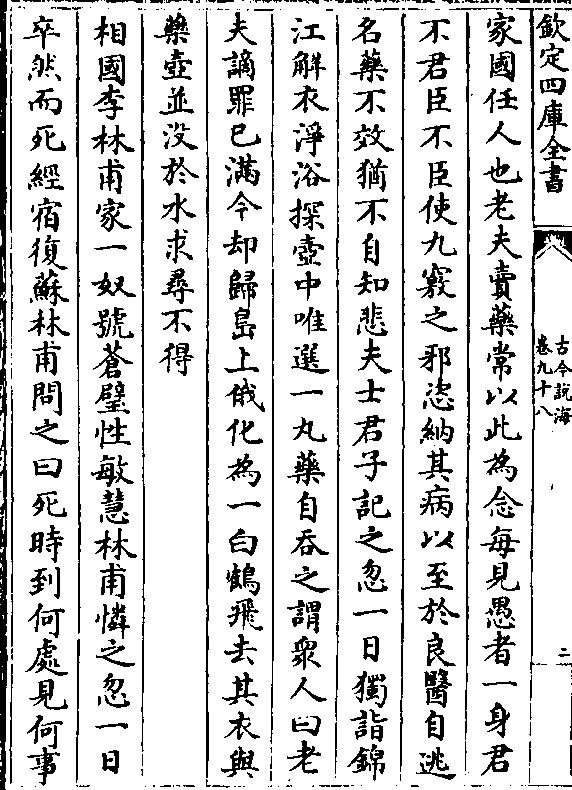 欽定四庫全書
古今說海
卷九十八
二
家國任人也老夫賣藥常以此為念每見愚者一身君
不君臣不臣使九竅之邪恣納其病以至於良醫自逃
名藥不效猶不自知悲夫士君子記之忽一日獨詣錦
江解衣淨浴探壺中唯選一丸藥自吞之謂衆人曰老
夫謫罪已滿今却歸島上俄化為一白鶴飛去其衣與
藥壺並没於水求尋不得
相國李林甫家一奴號蒼璧性敏慧林甫憐之忽一日
卒然而死經宿復蘇林甫問之曰死時到何處見何事